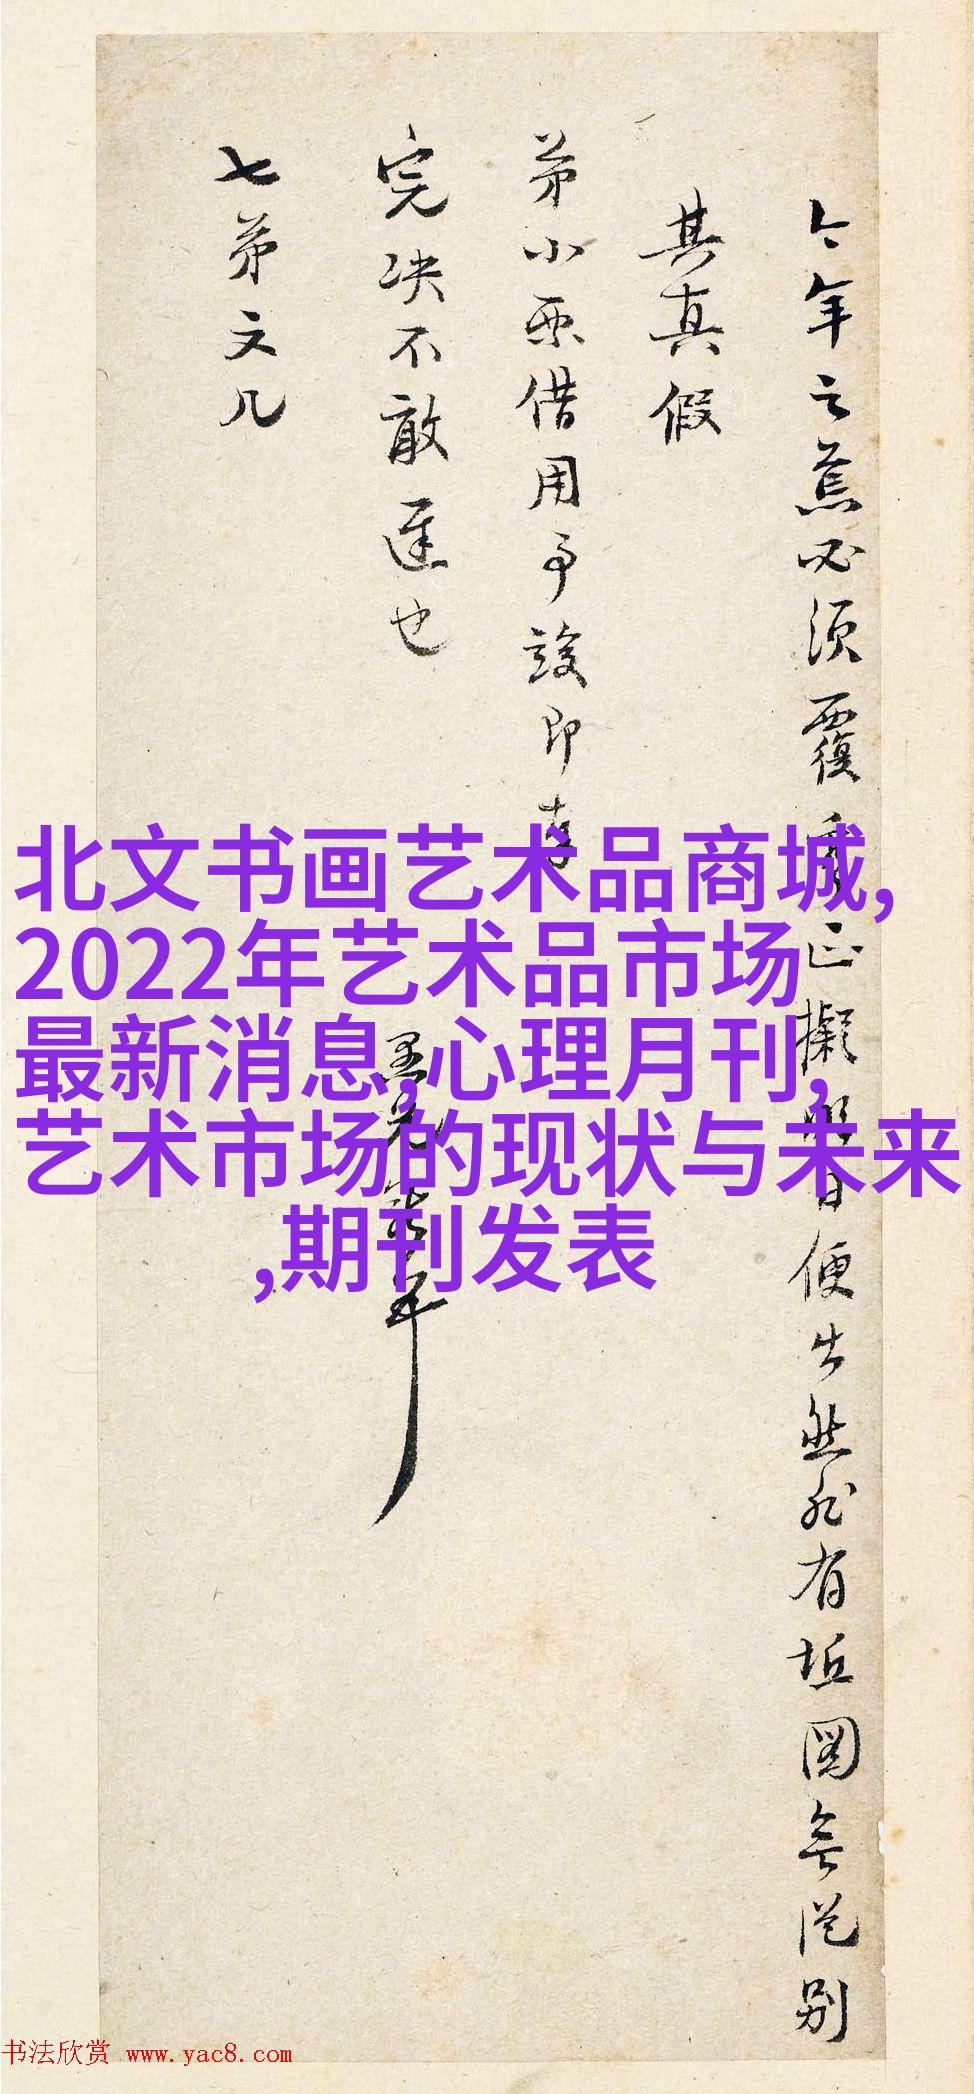 今年之蕉必須覆正擬日便出然有坵圖無從别
其真假
弟小票借用竣即
完决不敢遲也
七弟文几
北文书画艺术品商城,
2022年艺术品市场
最新消息,心理月刊,
艺术市场的现状与未来
,期刊发表
书法欣赏 www.yac8.com